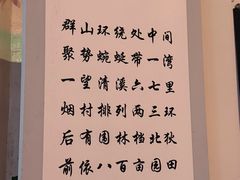 群山环绕处中间
聚势蜿蜒带一湾
一望清溪六七里
烟村排列两三环
后有园林档北狄
前依八百亩园田